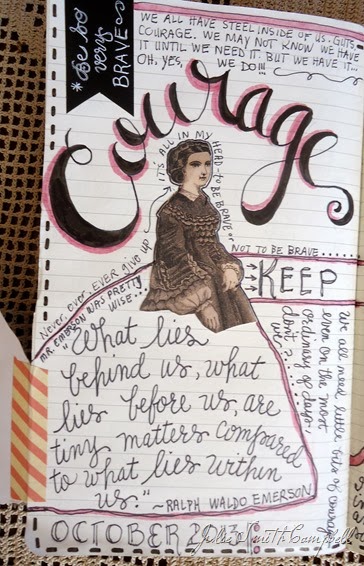 *Be so
very
BRAVE*
WE ALL HAVE STEEL INSIDE OF US. GUTS.
COURAGE. WE MAY NOT KNOW WE HAVE
IT UNTIL WE NEED IT. BUT WE HAVE IT..
OH, YES, WE DO!!!
Courage
IT'S ALL IN MY HEAD - TO BE BRAVE or
NOT TO BE BRAVE......
Never, ever, EVER give up
MR. EMERSON WAS PRETTY
WISE...
KEEP
"What lies
behind us, what
lies before us, are
tiny matters compared
to what lies within
us."
~RALPH WALDO EMERSON
We all need little bits of courage
even on the most
ordinary of days,
don't
we?...
OCTOBER 2013
Julie Smith Campbell